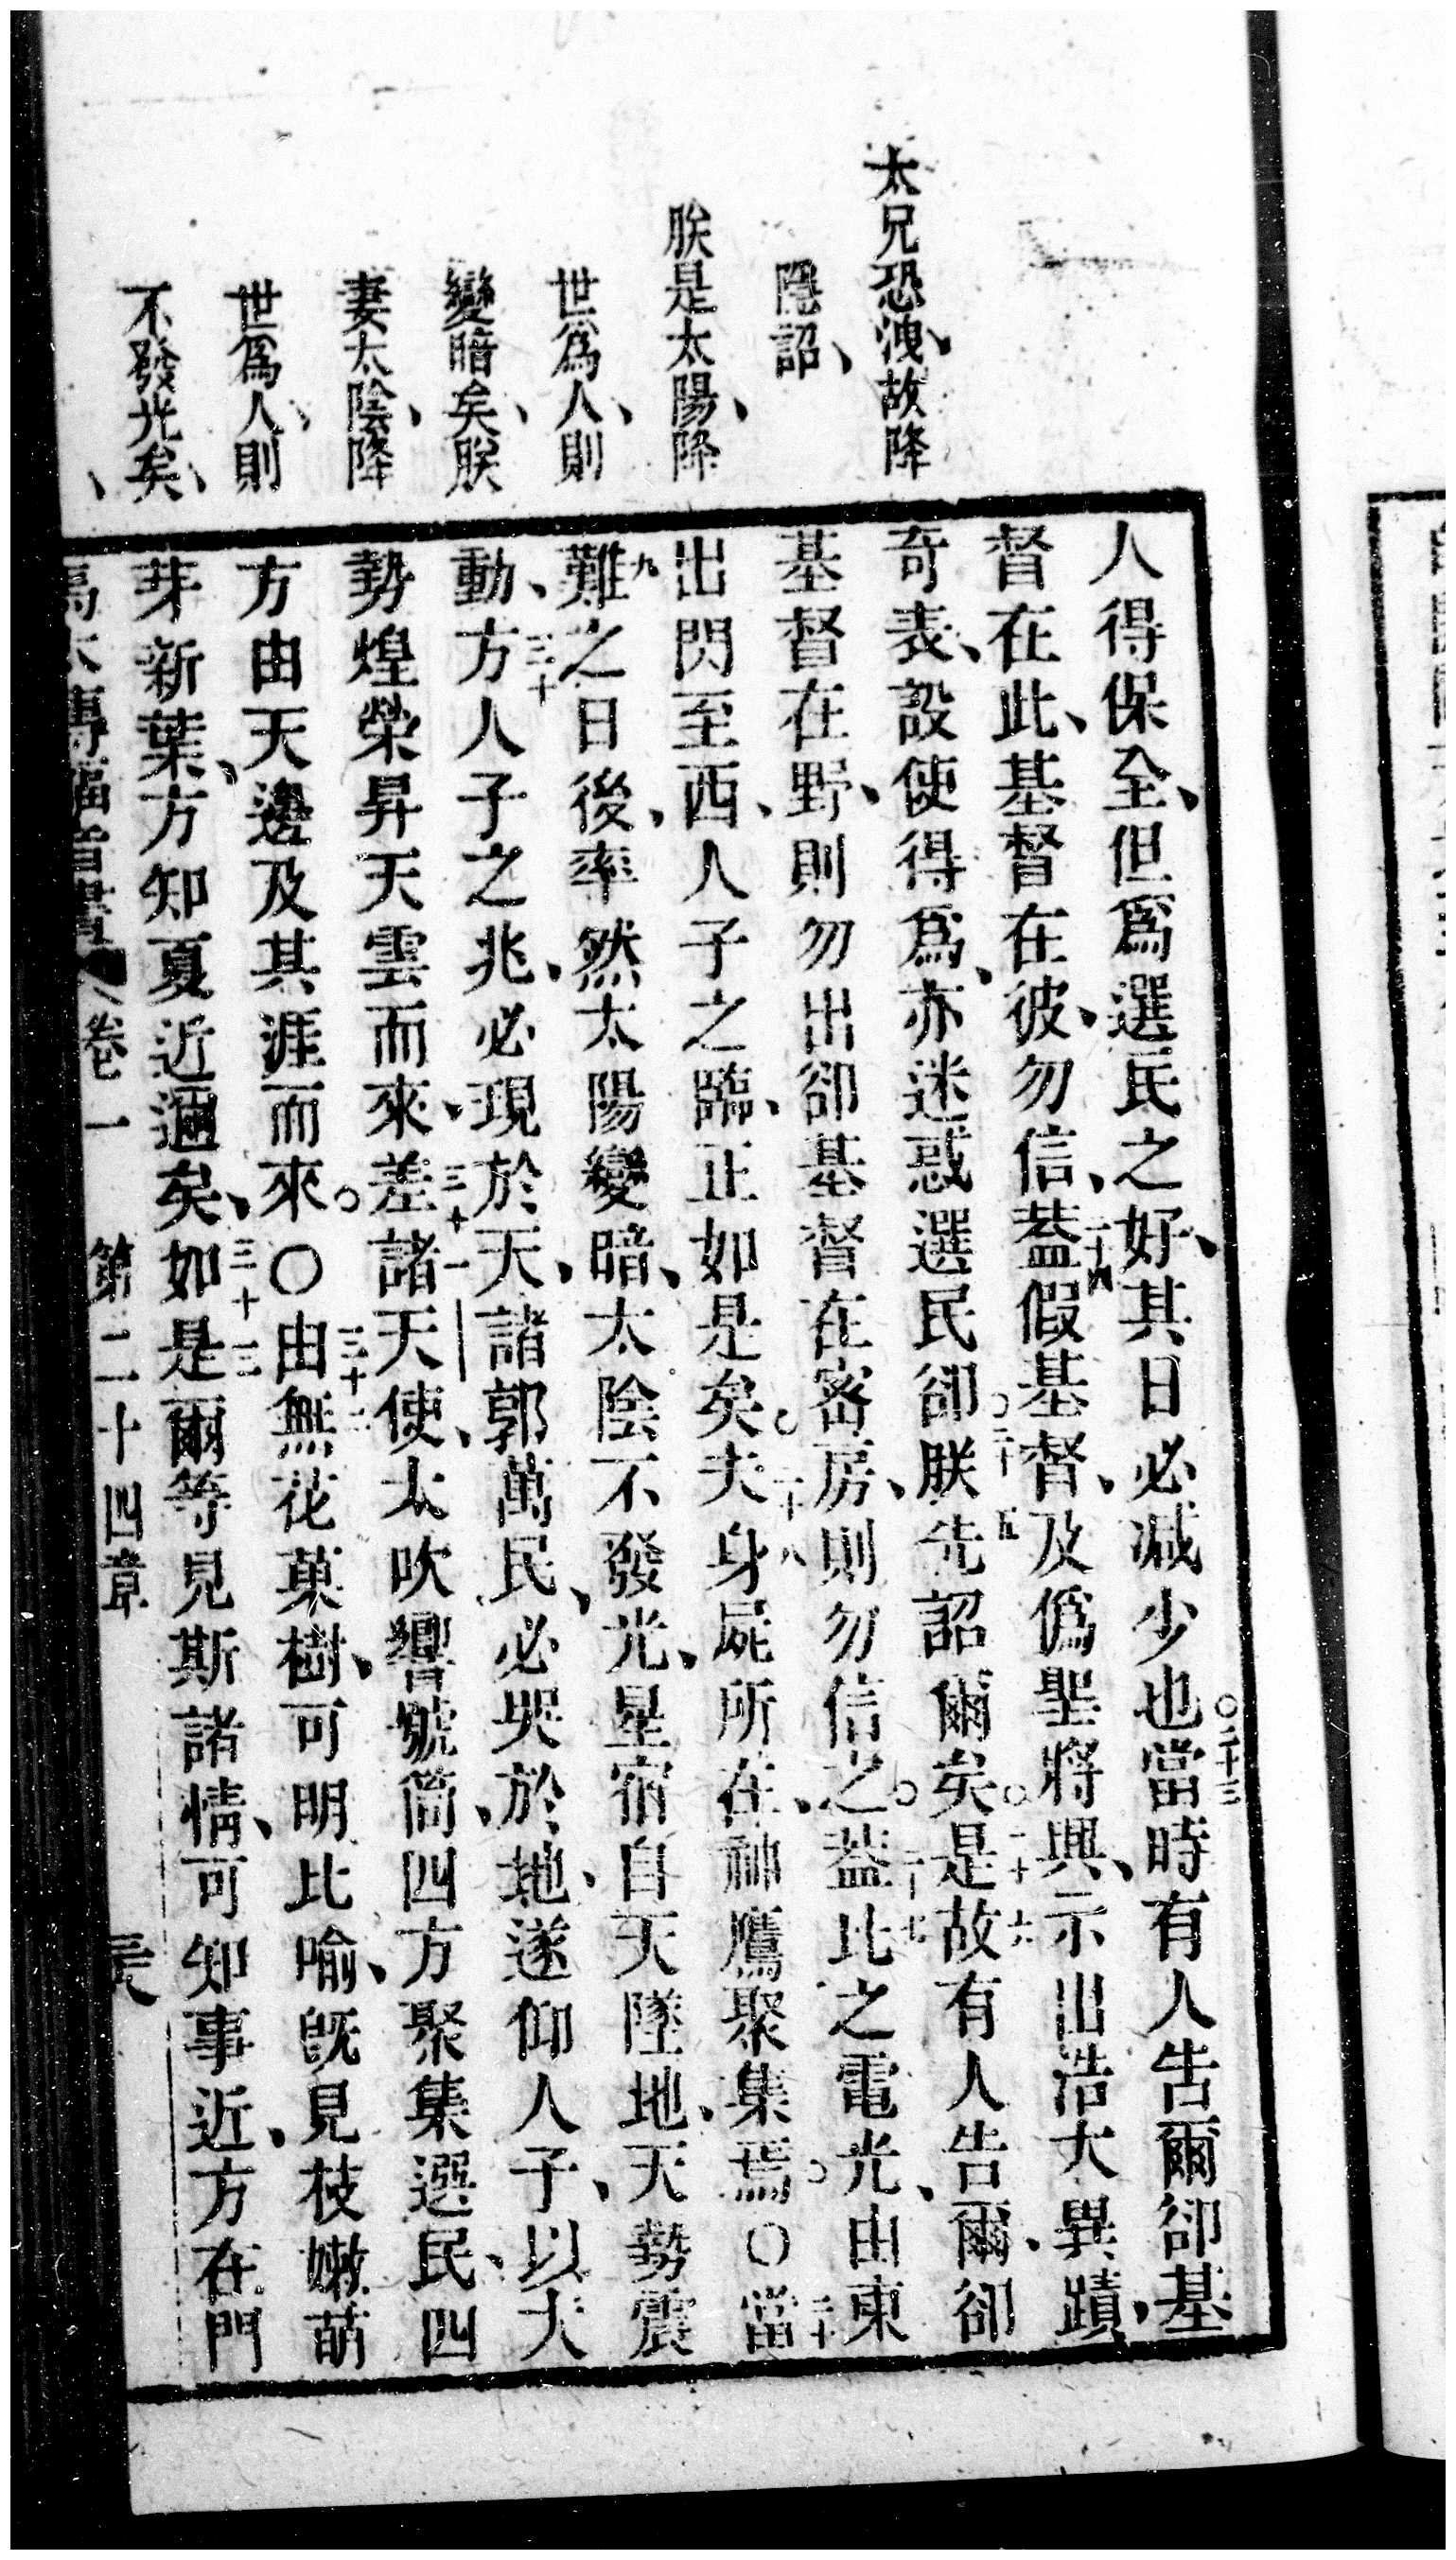 太兄恐洩、故降
隱詔、
朕是太陽、降
世爲人、則
變暗矣、朕
妻太陰、降
世爲人、則
不發光矣、
人得保全、但爲選民之好、其日必減少也○二十三當時有人告爾卻基
督在此、基督在彼、勿信、二十四蓋假基督、及僞聖將興、示出浩大異蹟、
奇表、設使得爲、亦迷惑選民卻○二十五朕先詔爾矣○二十六是故有人告爾、卻
基督在野、則勿出卻基督在密房、則勿信之○二十七蓋此之電光、由東
出閃至西、人子之臨、正如是矣○二十八夫身屍所在、神鷹聚集焉○〇二十當
九難之日後、率然太陽變暗、太陰不發光、星宿自天墜地、天勢震
動、三十方人子之兆、必現於天、諸郭萬民、必哭於地、遂仰人子、以大
勢煌榮昇天雲而來、三十一差諸天使、太吹響號筒、四方聚集選民、四
方由天邊及其涯而來○〇三十二由無花菓樹、可明比喻、旣見枝嫩萌
芽新葉、方知夏近邇矣、三十三如是爾等見斯諸情、可知事近、方在門
卷一 第二十四章